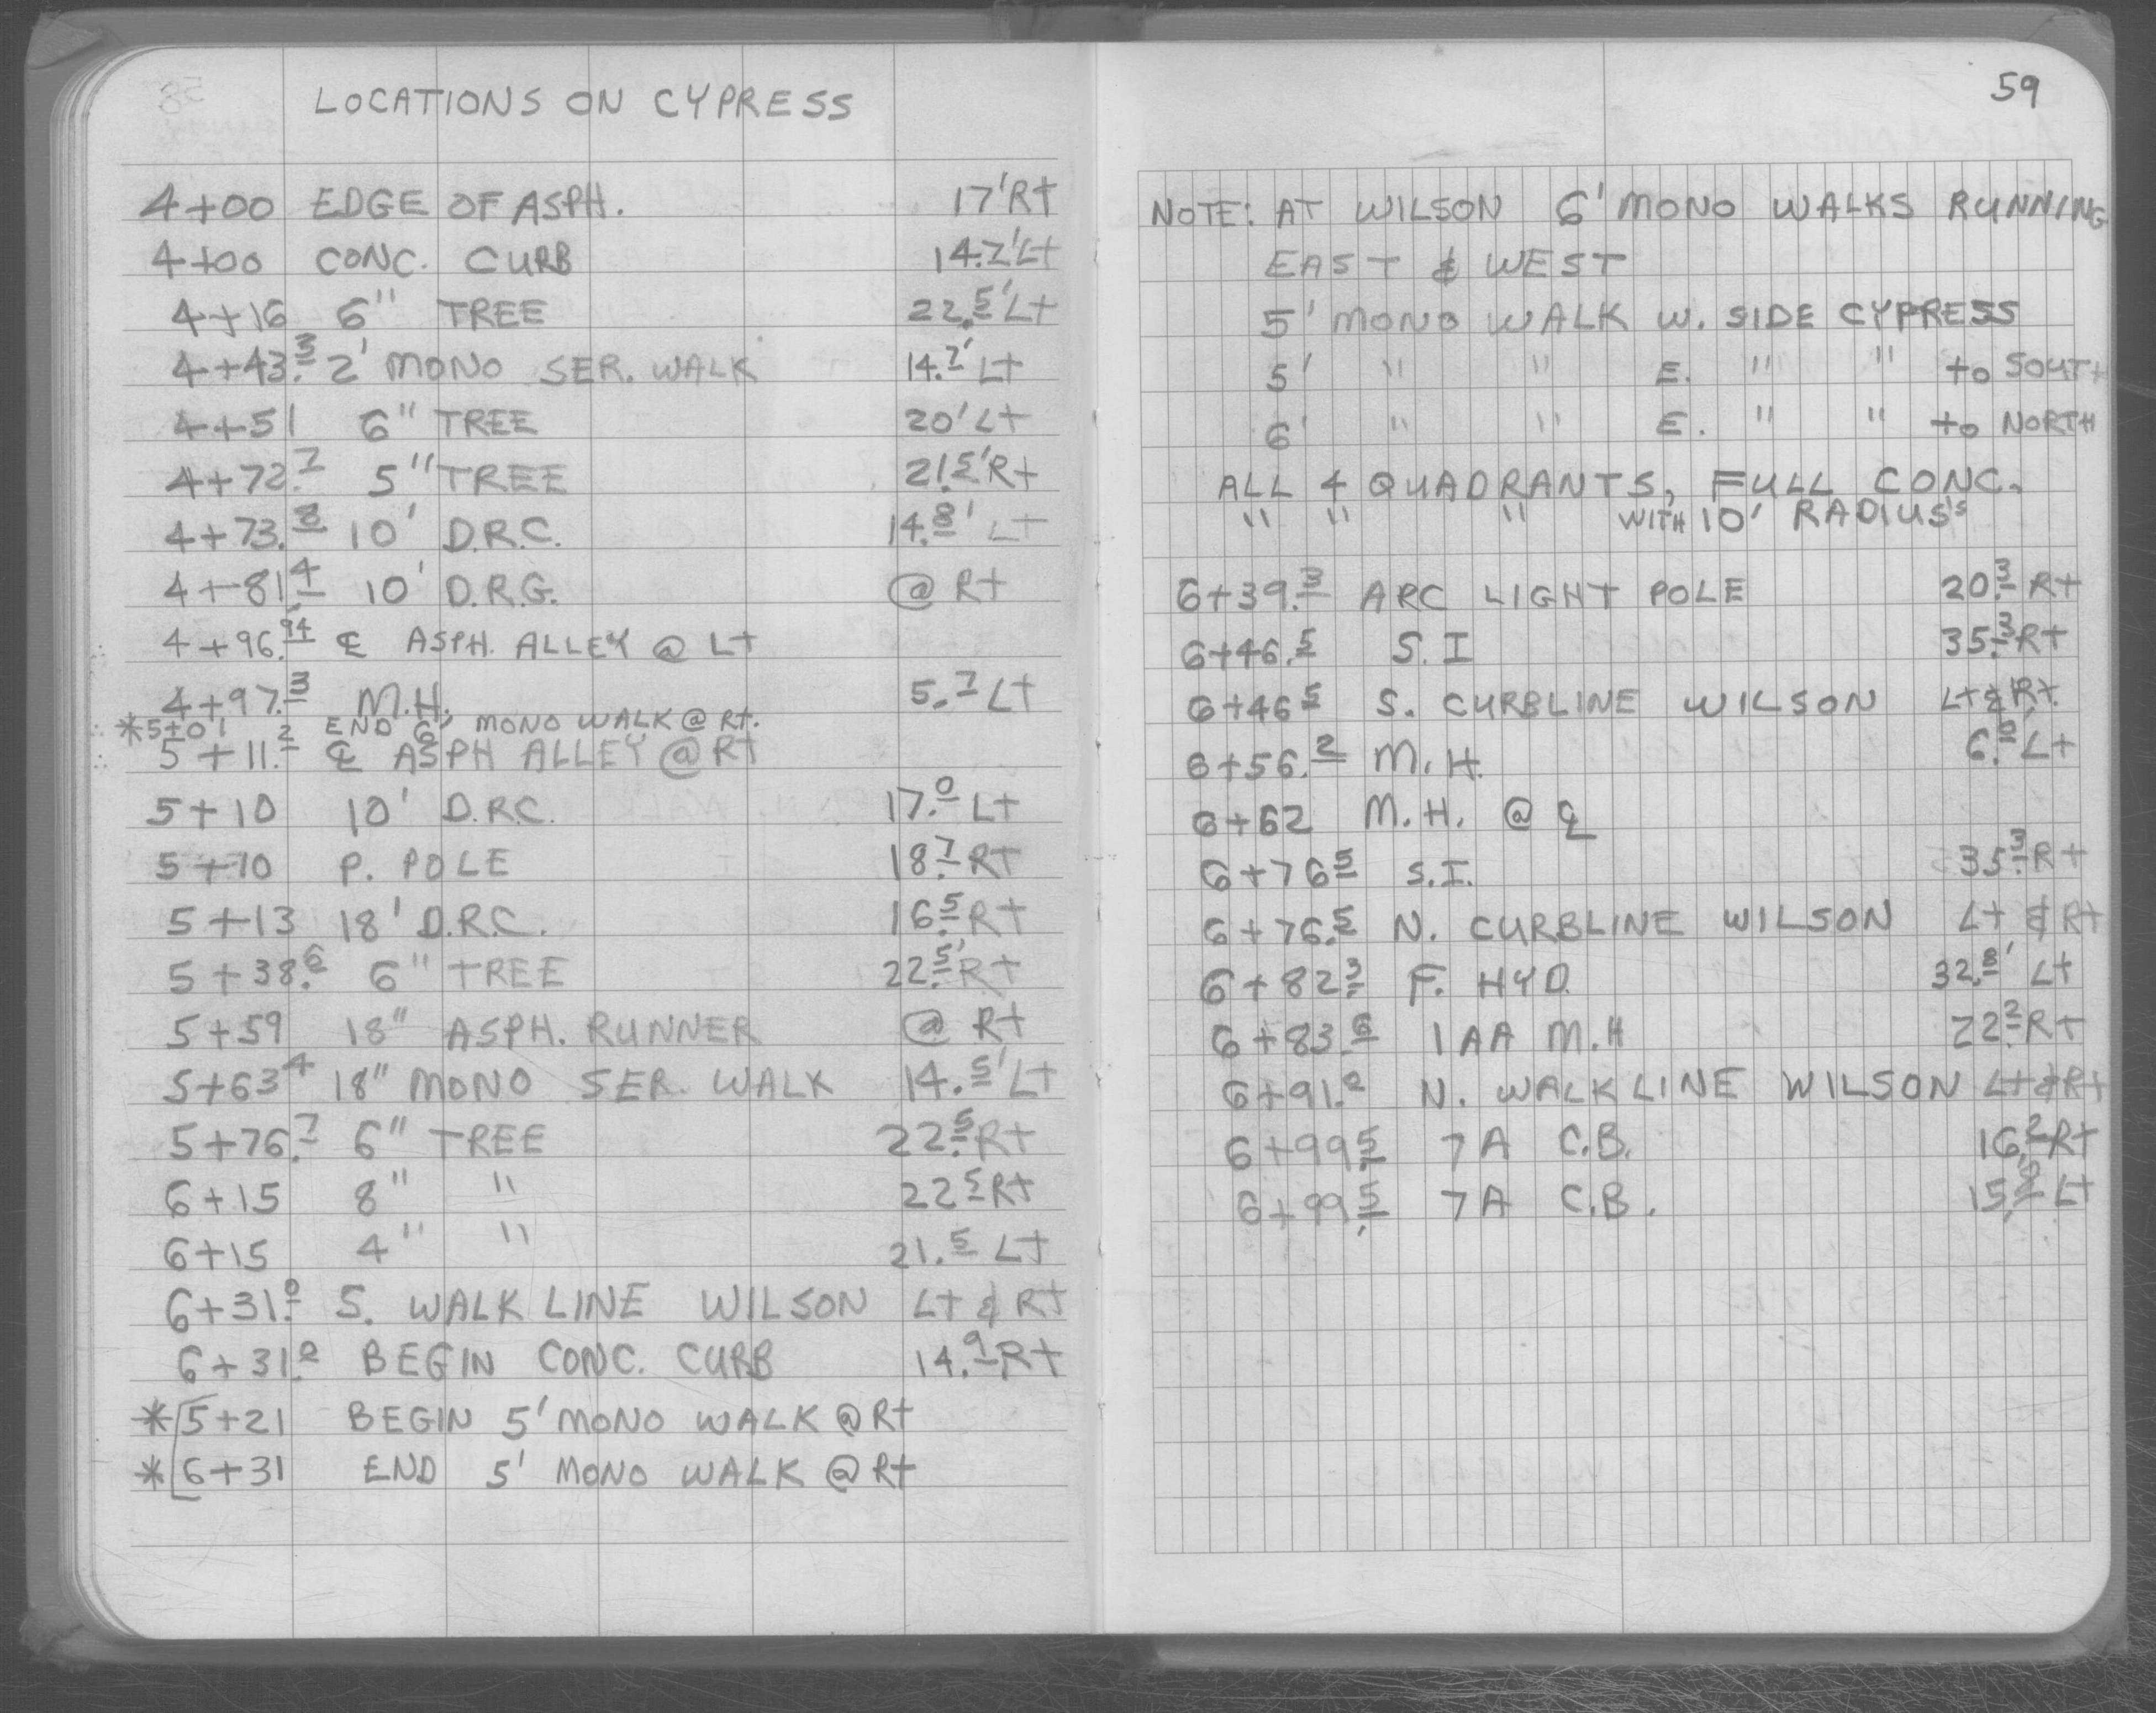 LOCATIONS ON CYPRESS
4+00 EDGE OF ASPH. 17'Rt
4+00 CONC. CURB 14.2'Lt
4+16 6" TREE 22.5'Lt
4+43.3 2' MONO SER. WALK 14.7' Lt
4+51 6" TREE 20'Lt
4+72.7 5" TREE 21.5'Rt
4+73.8 10' D.R.C. 14.8' Lt
4+81.4 10' D.R.G. @ Rt
4+96.94 ℄ ASPH. ALLEY @ Lt
4+97.3 M.H. 5.7 Lt
*5+01 END 6' MONO WALK @ Rt.
5+11.2 ℄ ASPH ALLEY @ Rt
5+10 10' D.R.C. 17.0 Lt
5+10 P. POLE 18.7 Rt
5+13 18' D.R.C. 16.5 Rt
5+38.6 6" TREE 22.5'Rt
5+59 18" ASPH. RUNNER @ Rt
5+63.4 18" MONO SER. WALK 14.5'Lt
5+76.7 6" TREE 22.5 Rt
6+15 8" " 22.5 Rt
6+15 4" " 21.5 Lt
6+31.0 S. WALK LINE WILSON Lt & Rt
6+31.0 BEGIN CONC. CURB 14.9 Rt
*[5+21 BEGIN 5' MONO WALK @ Rt
*[6+31 END 5' MONO WALK @ Rt
59
NOTE: AT WILSON 6' MONO WALKS RUNNING
EAST & WEST
5' MONO WALK W. SIDE CYPRESS
5' " " E. " " to SOUTH
6' " " E. " " to NORTH
ALL 4 QUADRANTS, FULL CONC.
" " " WITH 10' RADIUS's
6+39.3 ARC LIGHT POLE 20.3 Rt
6+46.5 S.I 35.3 Rt
6+46.5 S. CURBLINE WILSON Lt & Rt.
6+56.2 M.H. Lt
6+62 M.H. @ ℄
6+76.5 S.I. 35.3 Rt
6+76.5 N. CURBLINE WILSON Lt & Rt
6+82.3 F. HYD. 32.8' Lt
6+83.6 1AA M.H 22.2 Rt
6+91.0 N. WALK LINE WILSON Lt & Rt
6+99.5 7A C.B. 16.2 Rt
6+99.5 7A C.B. Lt